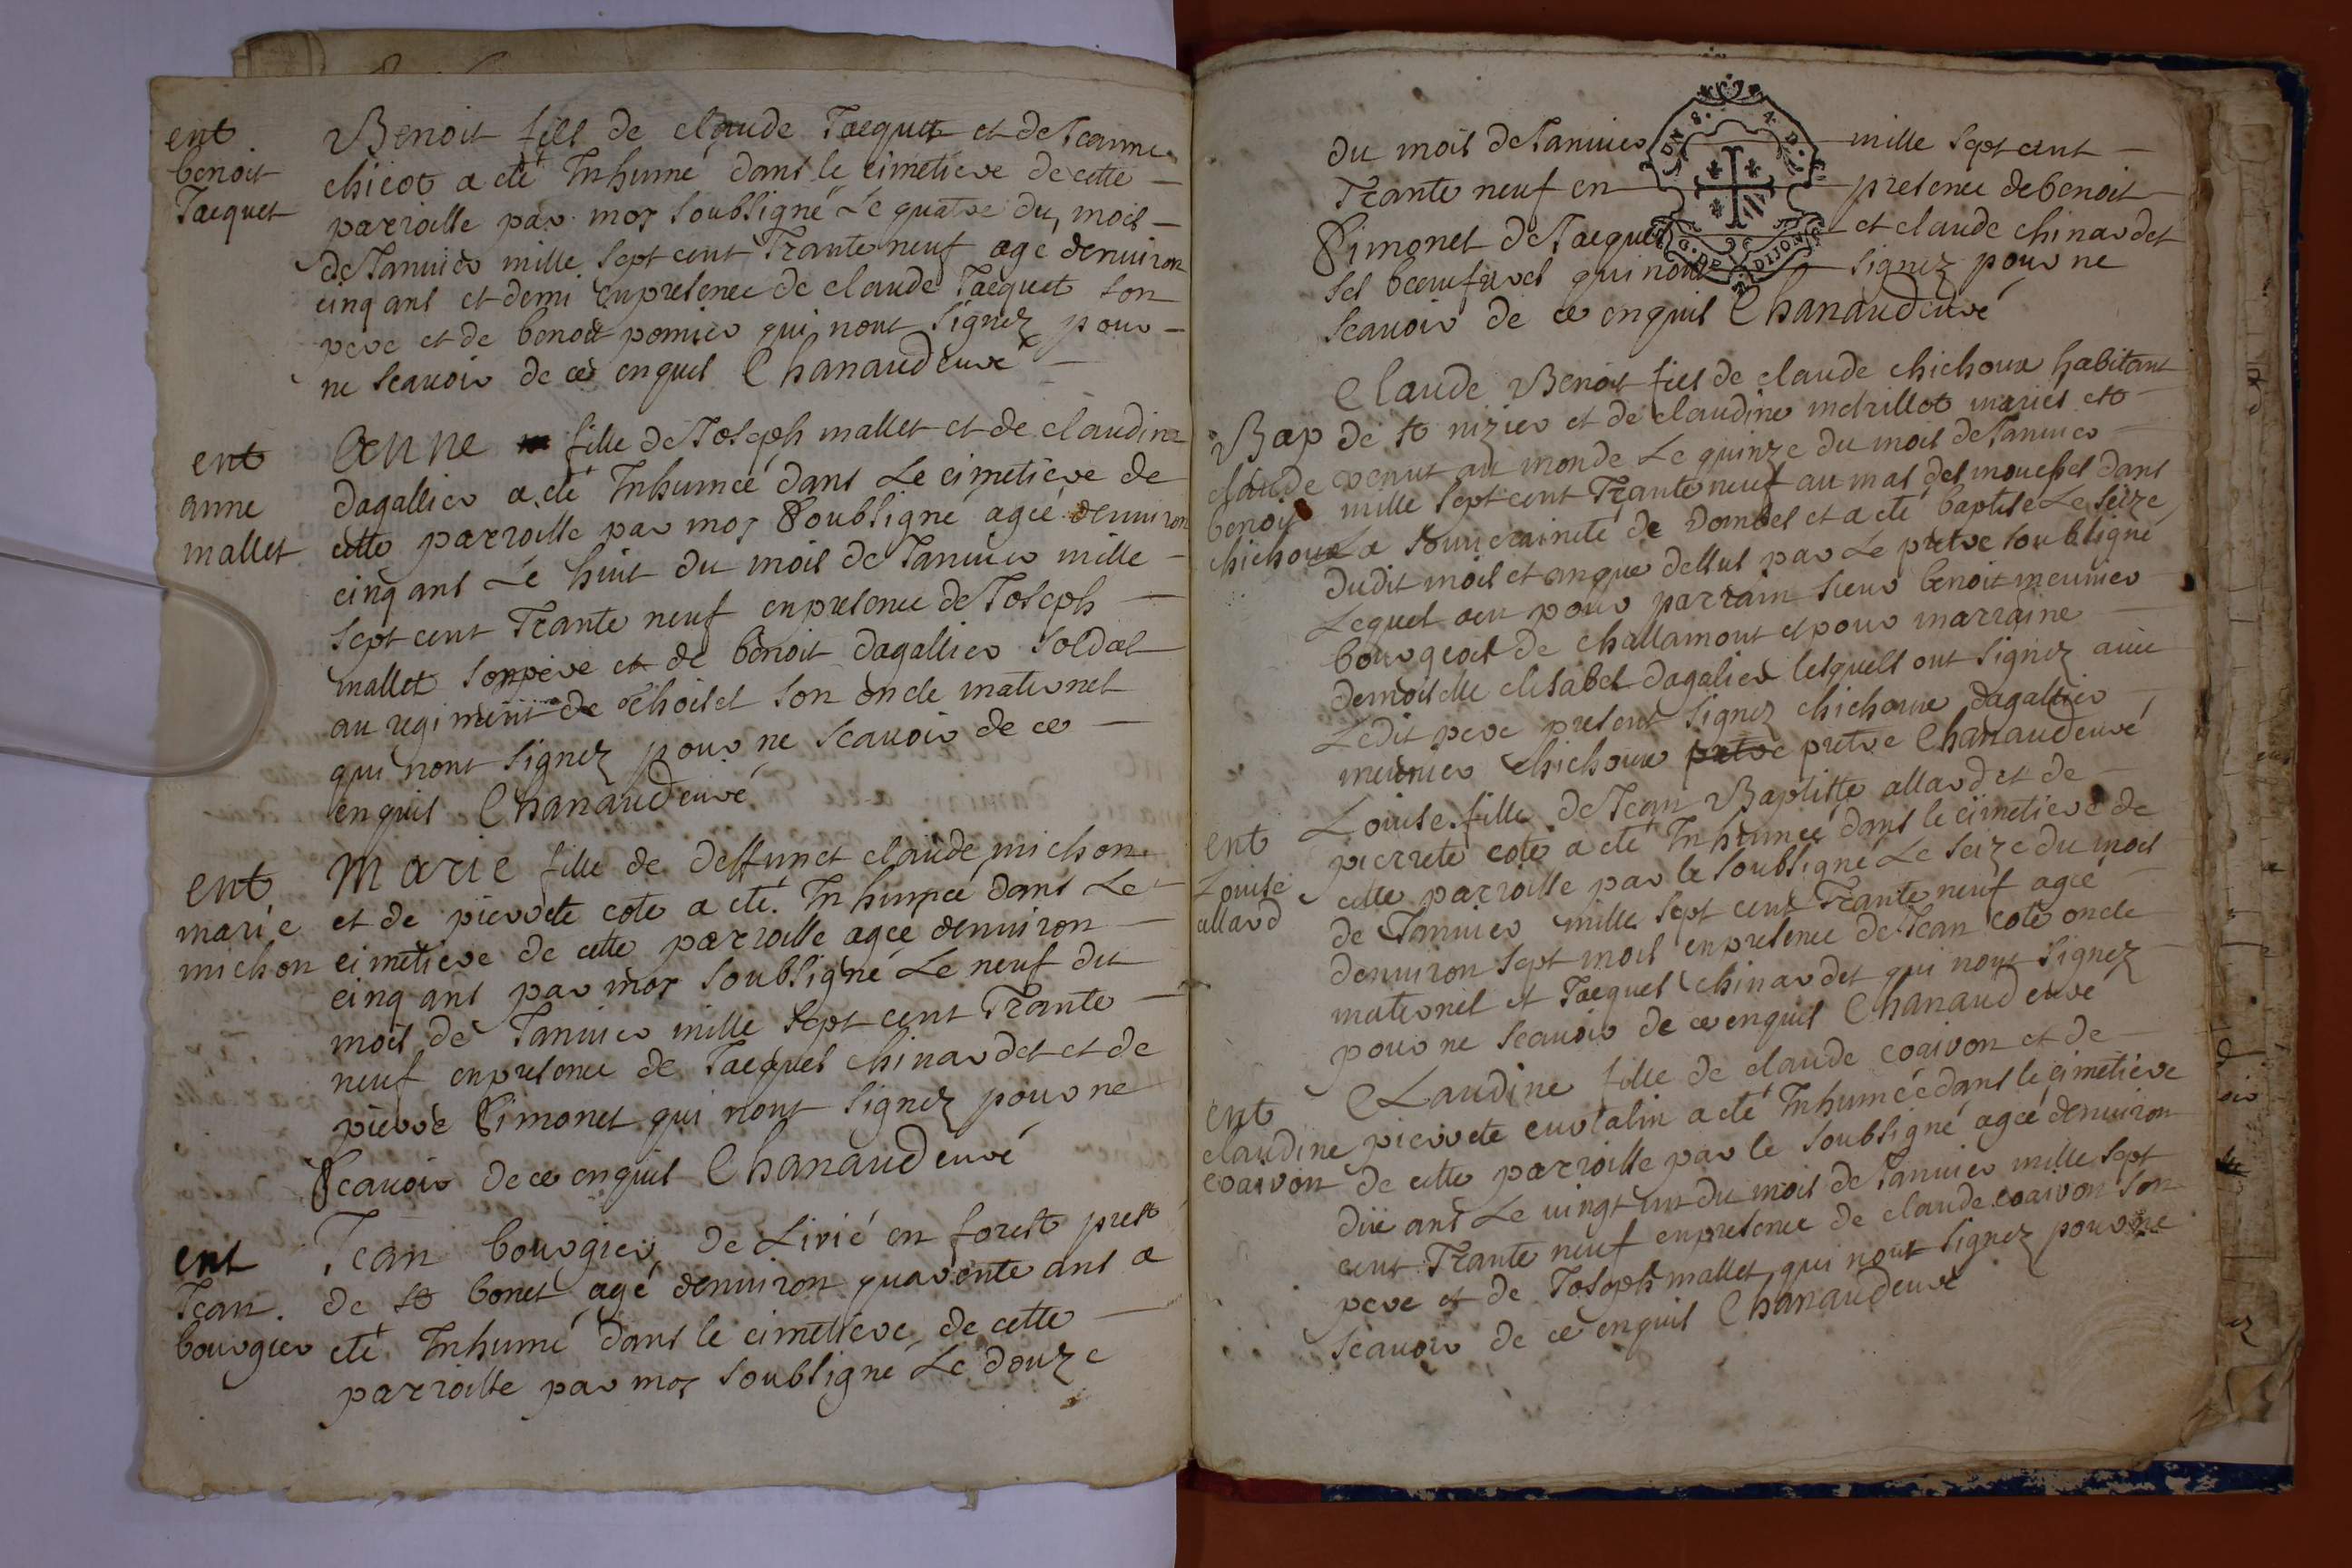 ent
benoit
Jacquet
Benoit fils de claude Jacquet et de Jeanne
chicot a eté Inhumé dans le cimetiere de cette
parroisse par moy soubsigné Le quatre du mois
de Janvier mille sept cent Trante neuf agé denuiron
cinq ans et demi en presence de claude Jacquet son
pere et de benoit pomier qui nont signez pour
ne scauoir de ce enquis Chanaud curé
ent
anne
mallet
Anne fille de Joseph mallet et de claudine
dagallier a eté Inhumeé dans Le cimetiere de
cette parroisse par moy soubsigné ageé denuiron
cinq ans Le huit du mois de Janvier mille
sept cent Trante neuf en presence de Joseph
mallet son pere et de benoit dagallier soldat
au regiment de choisel son oncle maternel
qui nont signez pour ne scauoir de ce
enquis Chanaud curé
ent
marie
michon
Marie fille de deffunct claude michon
et de pierrete cote a eté Inhumeé dans Le
cimetiere de cette parroisse ageé denuiron
cinq ans par moy soubsigné Le neuf du
mois de Janvier mille sept cent Trante
neuf en presence de Jacques chinardet et de
pierre Simonet qui nont signez pour ne
scauoir de ce enquis Chanaud curé
ent
Jean
bourgier
Jean bourgier de Livié en forest pres
de st bonet agé denuiron quarente ans a
eté Inhumé dans le cimetiere de cette
parroisse par moy soubsigné Le douze
du mois de Janvier mille sept cent
Trante neuf en presence de benoit
Simonet de Jacques et claude chinardet
ses beaufreres qui nont signez pour ne
scauoir de ce enquis Chanaud curé
Bap
claude
benoit
chichoux
Claude Benoit fils de claude chichoux habitant
de st nizier et de claudine metrillot mariés est
venut au monde Le quinze du mois de Janvier
mille sept cent Trante neuf au mas des mouches dans
La souueraineté de Dombes et a eté baptisé Le seize
dudit mois et an que dessus par Le pretre soubsigné
Lequel a eu pour parrain sieur benoit meunier
bourgeois de challamont et pour marraine
demoiselle elisabet dagalier lesquels ont signez auec
Ledit pere present signez chichoux dagallier
meunier chichoux pretre pretre Chanaud curé
ent
Louise
allard
Louise fille de Jean Baptiste allard et de
pierrete cote a eté Inhumeé dans le cimetiere de
cette parroisse par le soubsigné Le seize du mois
de Janvier mille sept cent Trante neuf ageé
denuiron sept mois en presence de Jean cote oncle
maternel et Jacques chinardet qui nont signez
pour ne scauoir de ce enquis Chanaud curé
ent
claudine
coaivon
CLaudine fille de claude coaivon et de
pierrete curtalin a eté Inhumeé dans le cimetiere
de cette parroisse par le soubsigné ageé denuiron
dix ans Le vingt un du mois de Janvier mille sept
cent Trante neuf en presence de claude coaivon son
pere et de Joseph mallet qui nont signez pour ne
scauoir de ce enquis Chanaud curé